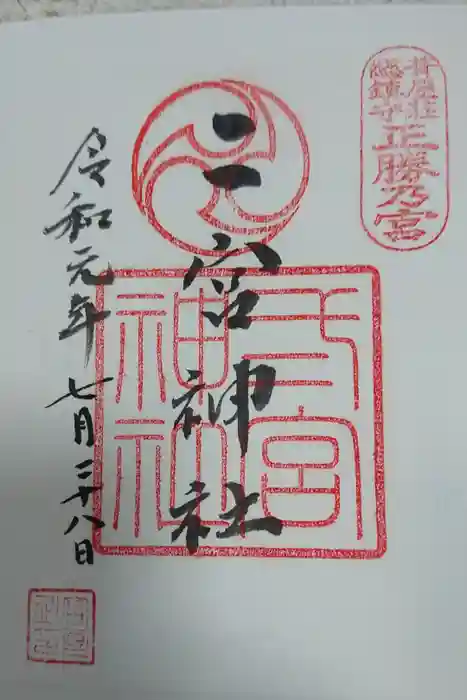 葺屋荘
總鎮守
正勝乃宮
二宮神社
弍宮
神社
令和元年 七月二十八日